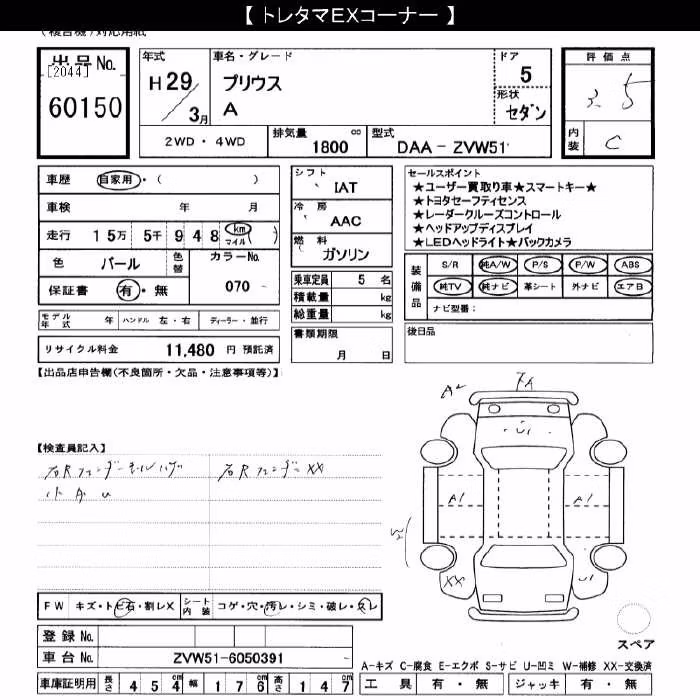 【 トレタマEXコーナー 】
出品No.
[2044]
60150
年式
H29
3月
車名・グレード
プリウス
A
ドア
5
形状
セダン
2WD・4WD
排気量 1800 cc
型式 DAA-ZVW51
評価点
3.5
内装
C
車歴 自家用・( )
車検 年 月
走行 15万 5千 948 km マイル )
色 パール
色替
カラーNo.
070
保証書 有・無
モデル年式 年 ハンドル 左・右 ディーラー・並行
リサイクル料金 11,480 円 預託済
シフト
IAT
冷房
AAC
燃料
ガソリン
乗車定員 5 名
積載量 kg
総重量 kg
書類期限
月 日
セールスポイント
★ユーザー買取り車★スマートキー★
★トヨタセーフティセンス
★レーダークルーズコントロール
★ヘッドアップディスプレイ
★LEDヘッドライト★バックカメラ
装備品
S/R 純A/W P/S P/W ABS
純TV 純ナビ 革シート 外ナビ エアB
ナビ型番:
後日品
【出品店申告欄(不良箇所・欠品・注意事項等)】
【検査員記入】
右Rフェンダー
右Rフェンダー XX
A2
U1
A1
A1
XX
U1
FW キズ・トビ石・割レX
シート内装 コゲ・穴・汚レ・シミ・破レ・スレ
登録No.
車台No. ZVW51-6050391
スペア
A-キズ C-腐食 E-エクボ S-サビ U-凹ミ W-補修 XX-交換済
車庫証明用 長さ 454 cm 幅 176 cm 高さ 147
工具 有・無 ジャッキ 有・無